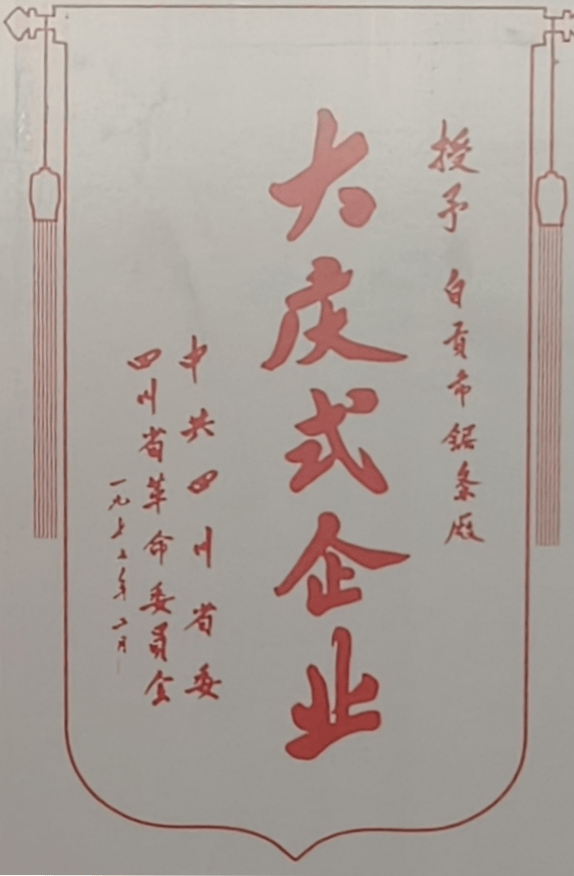 授予 自贡市锯条厰
大庆式企业
中共四川省委
四川省革命委员会
一九七五年二月